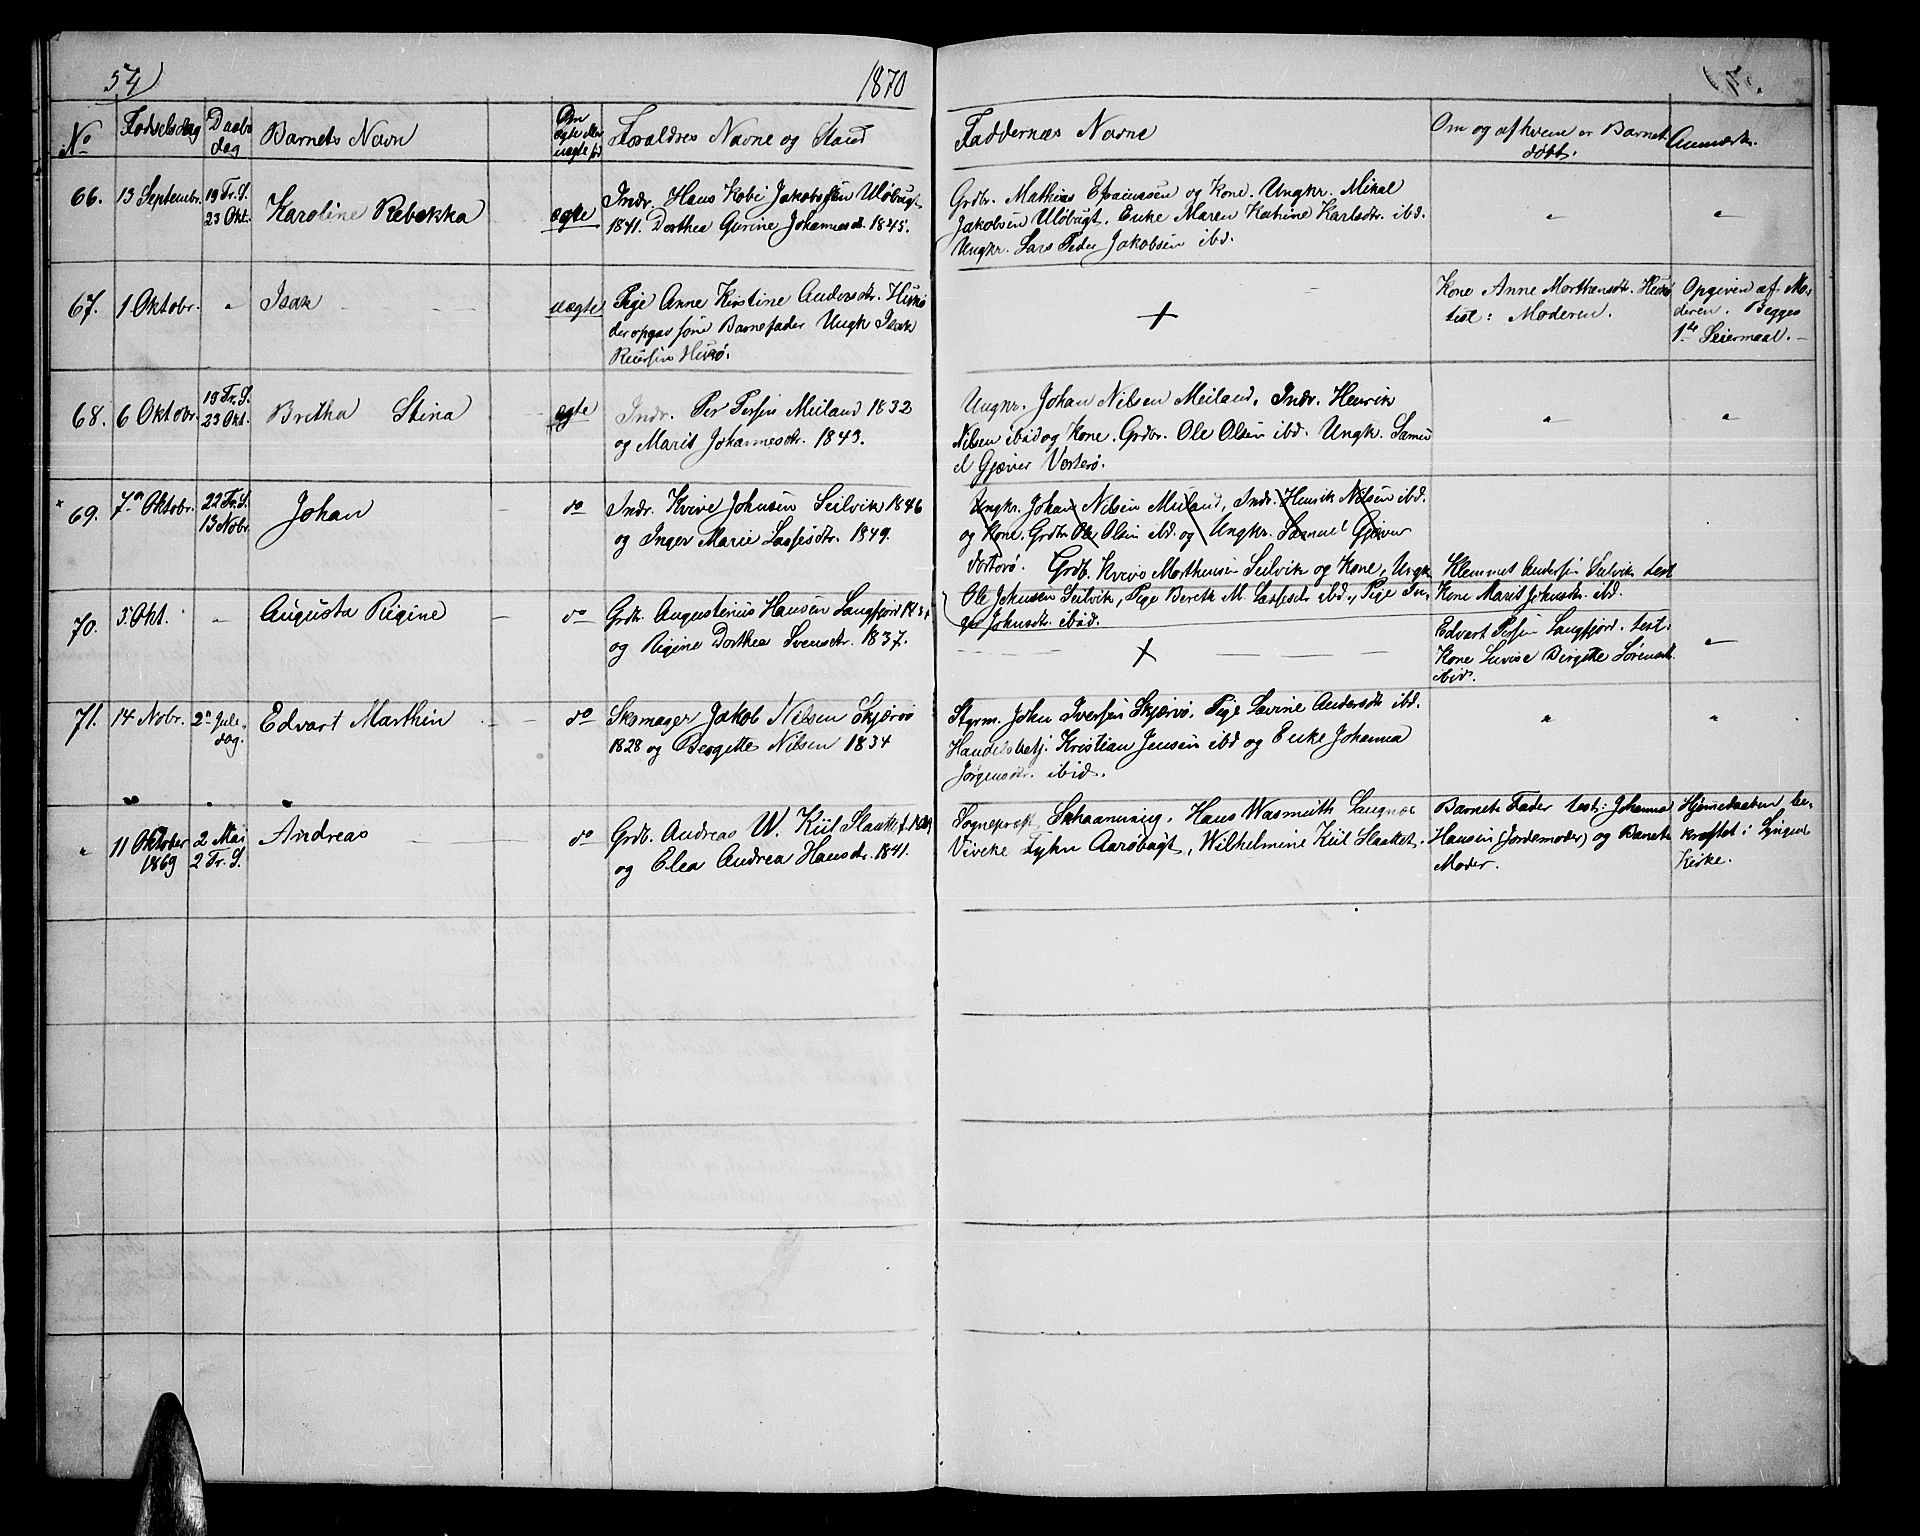 54)
1870
No
Fødselsdag
Daabs
dag
Barnets Navn
Om
ægte eller
uægte fø
Forældres Navne og Stand
Faddernes Navne
Om og af hvem er Barnet
døbt.
Anmærk.
66. 13 Septembr. 19 Tr. S.
23 Okt. Karoline Rebekka ægte
Indr. Hans Kobi Jakobssen Uløbugt
1841. Dorthea Gurine Johannesdr. 1845.
Grdbr. Mathias Efraimsen og Kone. Ungkr. Mikal
Jakobsen Uløbugt. Enke Maren Katrine Karlsdtr. ibd.
Ungkr. Lars Peder Jakobsen ibd.
" "
67. 1 Oktobr. " Isak — — uægte
Pige Anne Kirstine Andersdtr. Hukø
der opgav som Barnefader Ungk Isak
Hukø.
+
Kone Anne Morthensdtr.
test: Moderen.
Opgiven af Mo,
deren. Begges
1ste Leiermaal. —
68. 6 Oktobr. 19 Tr. S.
23 Okt. Britha Stina — ægte
Indr. Per Persen Meiland 1832
og Marit Johannesdtr. 1843.
Ungkr. Johan Nilsen Meiland, Indr. Henrik
Nilsen ibid og Kone. Grdbr. Ole Olsen ibd. Ungk. Samu
el Gjæver Vorterø.
" "
69. 7de Oktobr. 22 Tr. S.
13 Nobr. Johan — do
Indr. Kvive Johnsen Seilvik 1846
og Inger Marie Lassesdtr. 1849.
Ungkr. Johan Nilsen Meiland, Indr. Henrik Nilsen ibd.
og Kone. Grdbr Ole Olsen ibd. og Ungkr. Samuel Gjæver
Vorterø. Grdb. Kvive Morthensen Seilvik og Kone, Ungk
Ole Johnsen Seilvik, Pige Bereth M. Lassesdtr ibd., Pige In,
ger Johnsdtr. ibid.
Klemmet Andersen Seilvik test
Kone Marit Johnsdtr. ibd.
70. 5 Okt. " Augusta Rigine — do
Grdr. Augustinius Hansen Langfjord 1834
og Rigine Dorthea Svensdtr. 1837.
— — + — —
Edvart Persen Langfjord. test.
Kone Lovise Birgitte Sørensdtr.
ibid.
"
71. 14 Nobr. 2den Jule,
dag. Edvart Marthin — — do
Skomager Jakob Nilsen Skjærvø
1828 og Bergitte Nilsen 1834
Styrm. John Iversen Skjærvø, Pige Lavine Andersdtr ibd.
Handelsbetj. Kristian Jensen ibd og Enke Johanna
Jørgensdtr. ibid.
" "
" 11 Oktober
1869 2 Mai
2 Tr. S. Andreas — — do
Grdb. Andreas W. Kiil Slaattet f. 1829
og Elea Andrea Hansdtr. 1841.
Sogneprest Skaanning, Hans Wasmuth Langnæs
Viveke Fyhn Aarøbugt, Wilhelmine Kiil Slaattet.
Barnets Fader test: Johanna
Hansen (Jordemoder) og Barnets
Moder.
Hjemmedaaben be-
kræftet i Lyngens
Kirke.